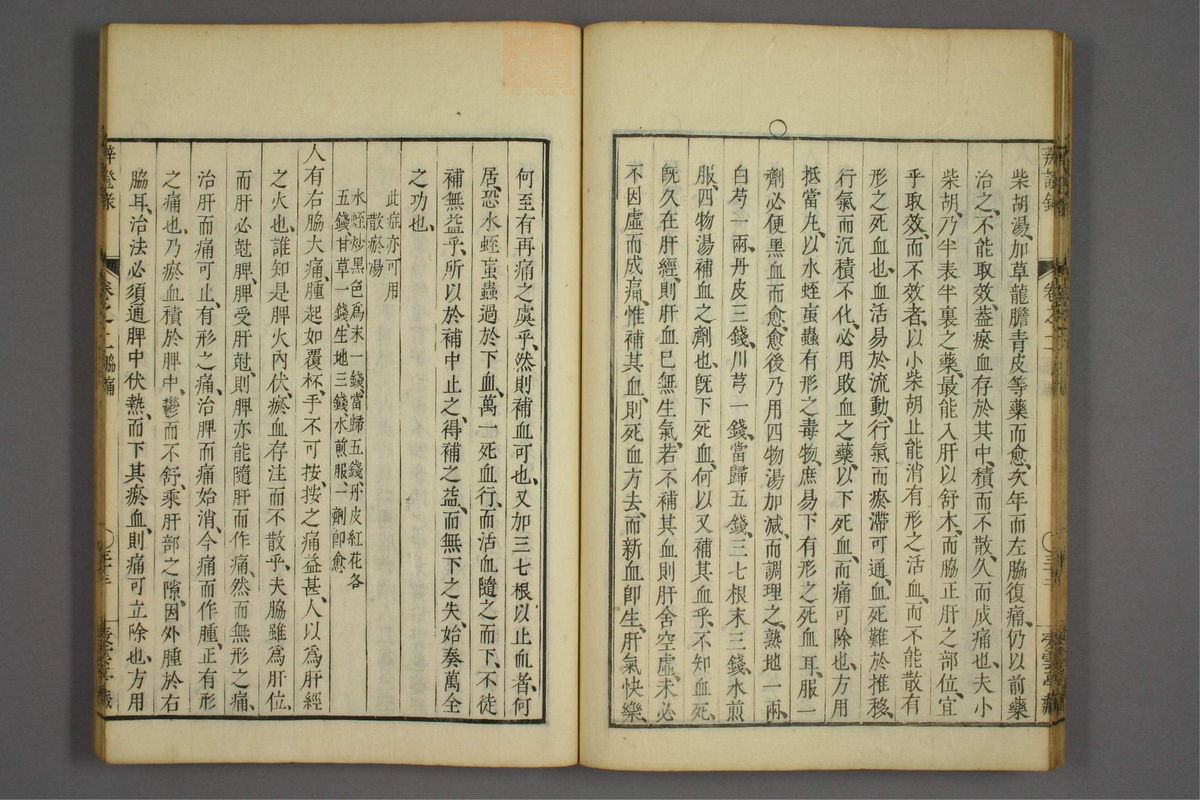 柴胡湯、加草龍膽青皮等藥而愈、次年而左脇復痛、仍以前藥
治之、不能取效、葢瘀血存於其中、積而不散、久而成痛也、夫小
柴胡、乃半表半裏之藥、最能入肝以舒木、而脇正肝之部位、宜
乎取效、而不效者、以小柴胡止能消有形之活血、而不能散有
形之死血也、血活易於流動、行氣而瘀滯可通、血死難於推移、
行氣而沉積不化、必用敗血之藥、以下死血、而痛可除也、方用
抵當丸、以水蛭䖟蟲有形之毒物、庶易下有形之死血耳、服一
劑必便黑血而愈、愈後乃用四物湯加減、而調理之、熟地一兩、
白芍一兩、丹皮三錢、川芎一錢、當歸五錢、三七根末三錢、水煎
服、四物湯補血之劑也、旣下死血、何以又補其血乎、不知血死
旣久在肝經、則肝血已無生氣、若不補其血則肝舍空虛、未必
不因虛而成痛、惟補其血、則死血方去、而新血卽生、肝氣快樂、
何至有再痛之虞乎、然則補血可也、又加三七根以止血者、何
居、恐水蛭䖟蟲過於下血、萬一死血行、而活血隨之而下、不徒
補無益乎、所以於補中止之、得補之益、而無下之失、始奏萬全
之功也、
此症亦可用
散瘀湯
水蛭炒黑色爲末一錢、當歸五錢、丹皮紅花各
五錢、甘草一錢生地三錢、水煎服一劑卽愈
人有右脇大痛、腫起如覆杯、手不可按、按之痛益甚、人以爲肝經
之火也、誰知是脾火內伏、瘀血存注而不散乎、夫脇雖爲肝位、
而肝必尅脾、脾受肝尅、則脾亦能隨肝而作痛、然而無形之痛、
治肝而痛可止、有形之痛、治脾而痛始消、今痛而作腫、正有形
之痛也、乃瘀血積於脾中、鬱而不舒、乘肝部之隙、因外腫於右
脇耳、治法必須通脾中伏熱、而下其瘀血、則痛可立除也、方用